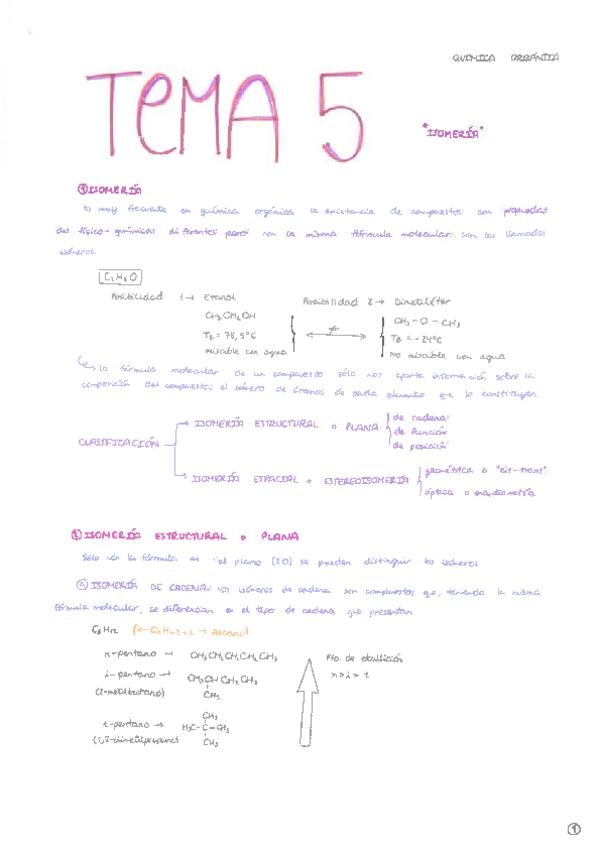 QUÍMICA ORGÁNICA
TEMA 5
"ISOMERÍA"
① ISOMERÍA
Es muy frecuente en química orgánica la existencia de compuestos con propiedades
físico-químicas diferentes pero con la misma fórmula molecular: son los llamados
isómeros.
C₂H₆O
Posibilidad 1 → Etanol
Posibilidad 2 → Dimetiléter
CH₃CH₂OH
CH₃-O-CH₃
≠
miscible con agua
No miscible con agua
↳ La fórmula molecular de un compuesto sólo nos aporta información sobre la
composición del compuesto: el número de átomos de cada elemento que lo constituyen
CLASIFICACIÓN
ISOMERÍA ESTRUCTURAL o PLANA
de cadena
de función
de posición
ISOMERÍA ESPACIAL o ESTEREOISOMERÍA
geométrica o "cis-trans"
óptica o
① ISOMERÍA ESTRUCTURAL o PLANA
Sólo con la fórmula en el plano (2D) se pueden distinguir los isómeros
ISOMERÍA DE CADENA: Los isómeros de cadena son compuestos que, teniendo la misma
fórmula molecular, se diferencian en el tipo de cadena que presentan
C₅H₁₂
Alcano)
n-pentano → CH₃CH₂CH₂CH₂CH₃
i-pentano → CH₃CHCH₂CH₃
(2-metilbutano)
CH₃
t-pentano →
CH₃
H₃C-C-CH₃
CH₃
Pto. de ebullición
n > i > t
①